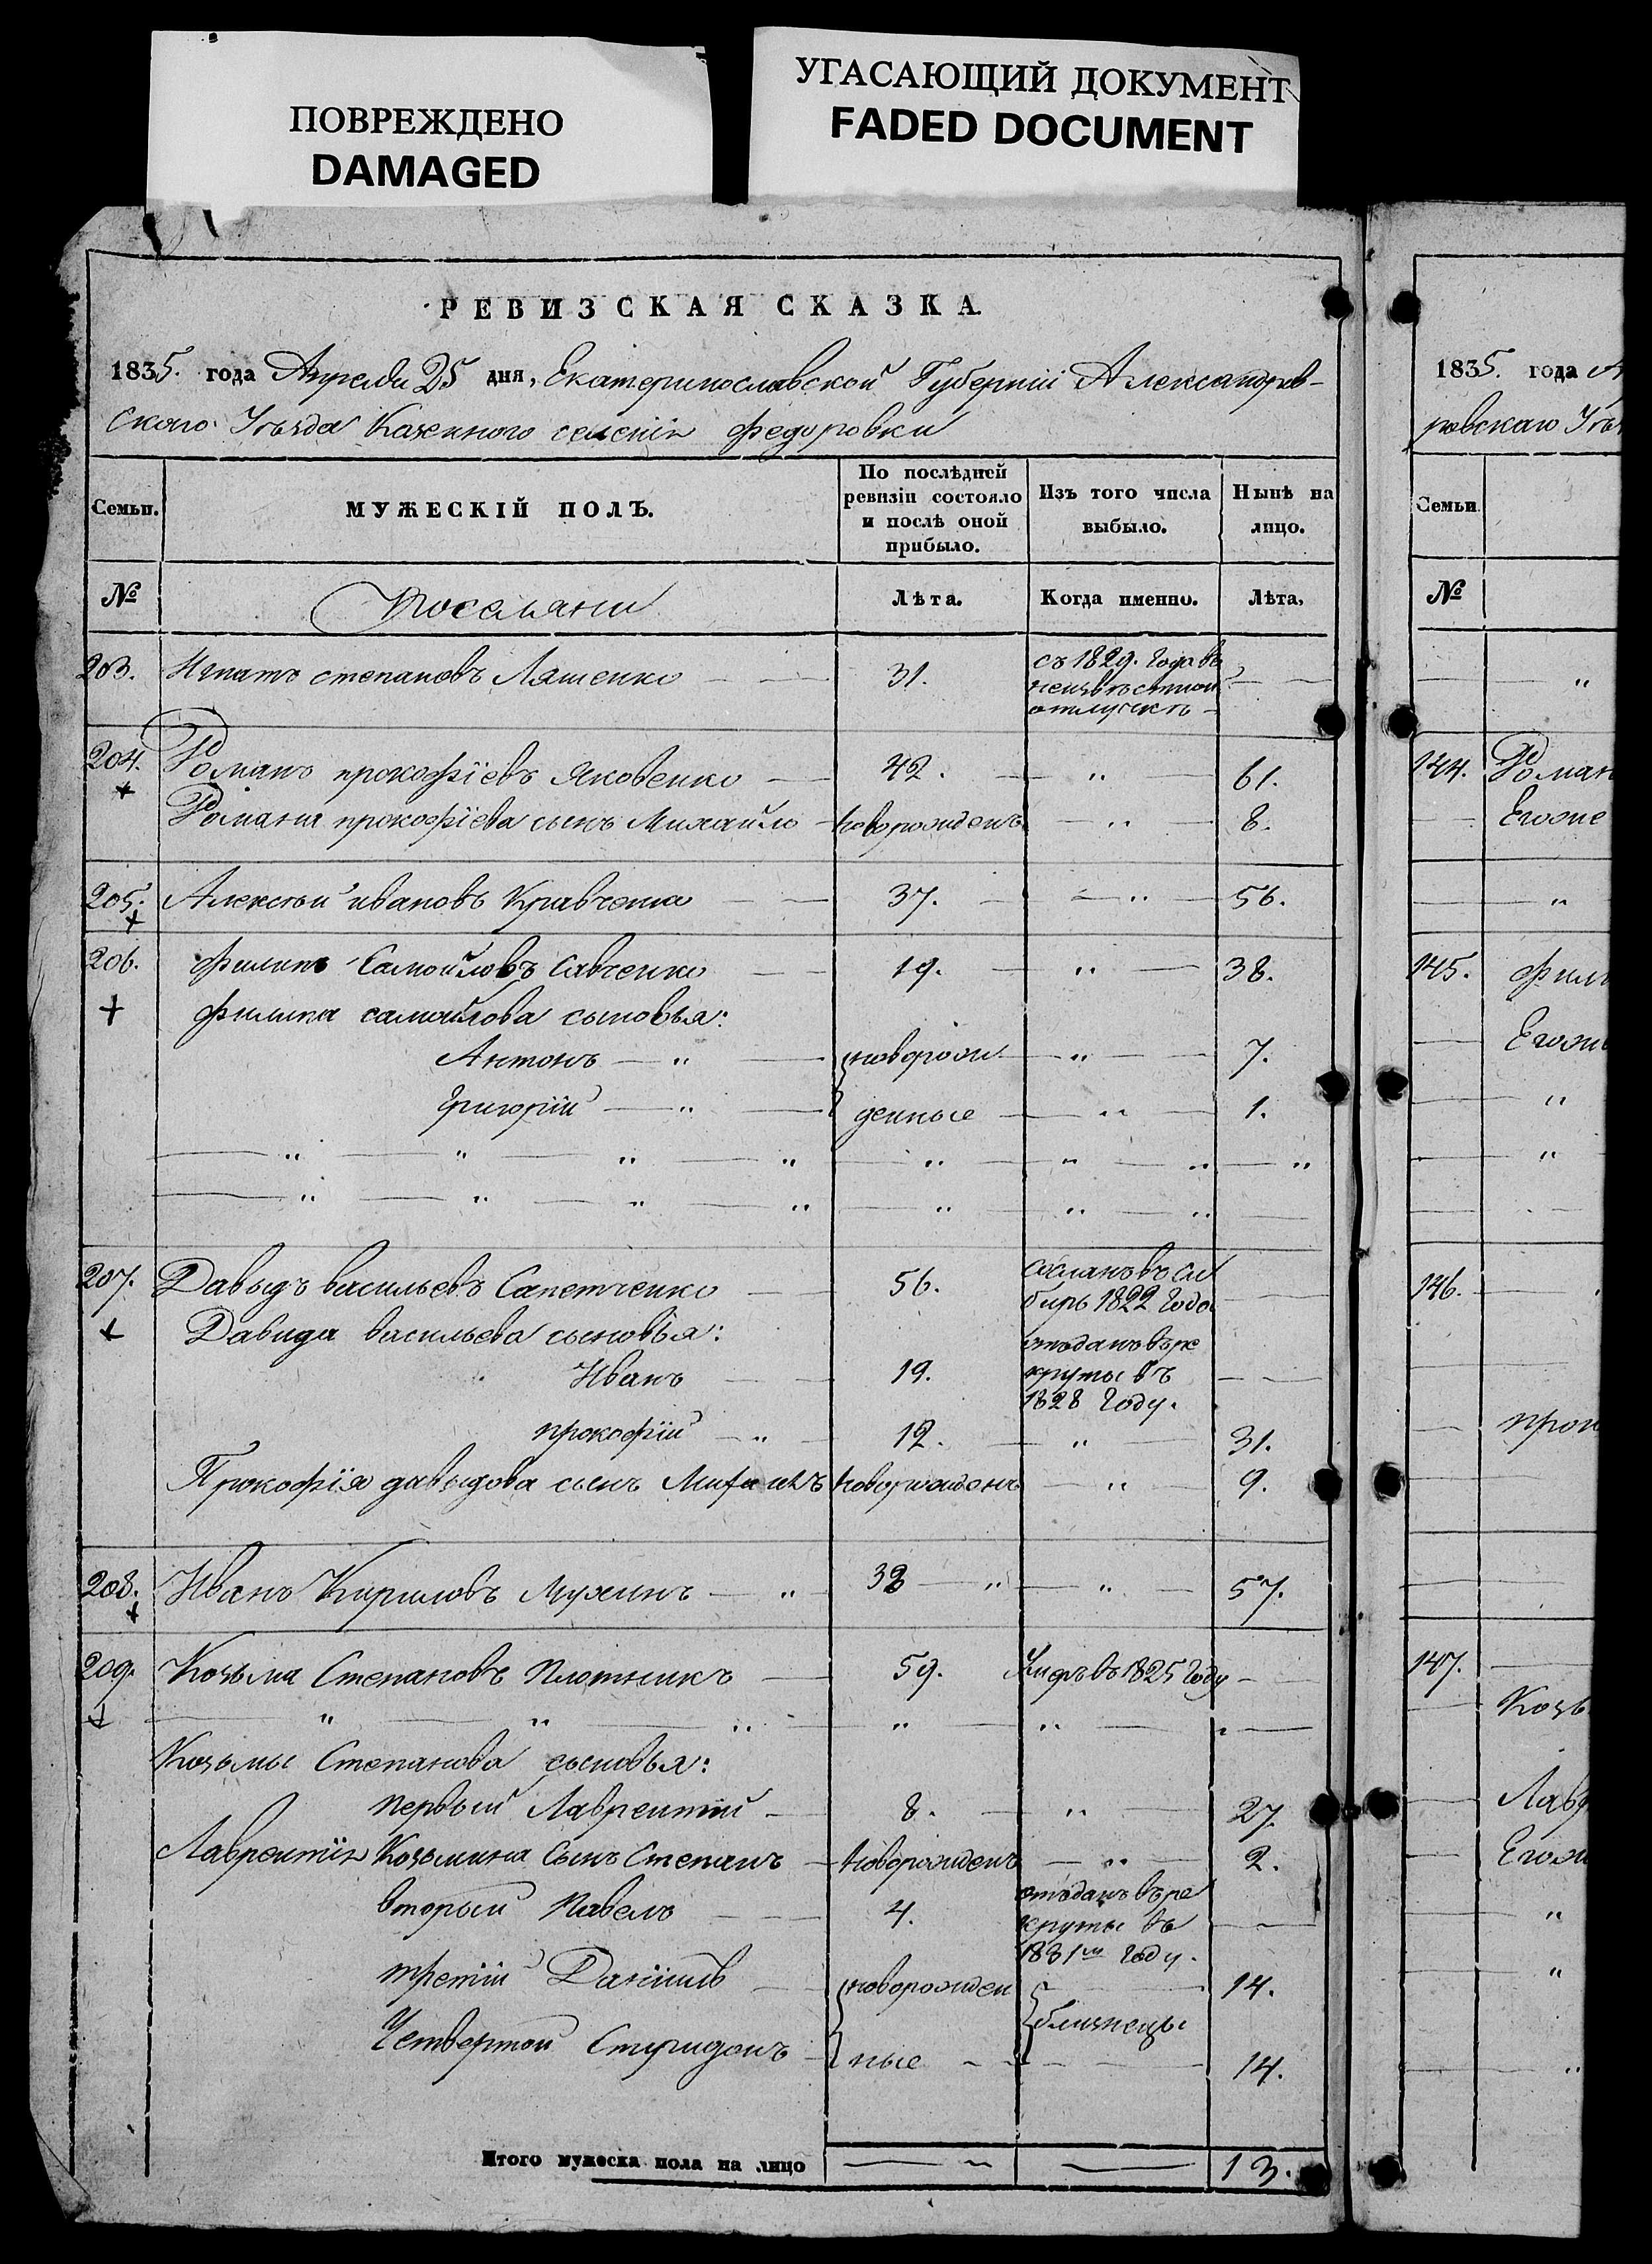 ПОВРЕЖДЕНО
DAMAGED
УГАСАЮЩИЙ ДОКУМЕНТ
FADED DOCUMENT
РЕВИЗСКАЯ СКАЗКА.
1835. года Апреля 25 дня, Екатеринославской Губерніи Александров-
скаго Уѣзда Казенного селенія Федоровки
Семьи. МУЖЕСКІЙ ПОЛЪ. По послѣдней ревизіи состояло и послѣ оной прибыло. Изъ того числа выбыло. Нынѣ на лицо.
№ Поселяни Лѣта. Когда именно. Лѣта.
203. Игнатъ степановъ Ляшенко — 31. съ 1829. года въ неизвѣстной отлучкѣ — —
204. Романъ прокофіевъ Яковенко — 42. — „ — 61.
Романа прокофіева сынъ Михайло — новорожденъ — „ — 8.
205. Алексѣй ивановъ Кравченко — 37. — „ — 56.
206. Филипъ Самойловъ Савченко — 19. — „ — 38.
Филипа самойлова сыновья:
Антонъ — „ — новорож — „ — 7.
Григорій — „ — денные — „ — 1.
— „ — „ — „ — „ — „ — „ — „ — „
— „ — „ — „ — „ — „ — „ — „ —
207. Давыдъ васильевъ Сапетченко — 56. сосланъ въ Си
бирь 1822 года — —
Давида васильева сыновья:
Иванъ — 19. отъданъ въ ре
круты въ
1828 году. — —
прокофій — „ 12. — „ — 31.
Прокофія давыдова сынъ новорожденъ — „ — 9.
208. Иванъ Кириловъ Мухинъ — „ 38 — „ — „ — 57.
209. Козьма Степановъ Плотникъ — 59. Умеръ въ 1825 году —
— „ — „ — „ — „ — „ — „ —
Козьмы Степанова сыновья:
первый Лаврентій — 8. — „ — 27.
Лаврентія Козьмина сынъ Степанъ — новорожденъ — „ — 2.
вторый Павелъ — 4. отъданъ въ ре
круты въ
1831м году. — —
третій Даніилъ — новорожден — 14.
близнецы
Четвертой Спиридонъ — ные — — 14.
Итого мужеска пола на лицо — — 13.
1835. года А
ровскаго Уѣ
Семьи.
№
— „
144. Роман
— Егоже
— „
145. Фили
— Егож
— „
— „
146. —
— прок
147. —
— Козь
— Лавр
— Егож
— „
— „
— „